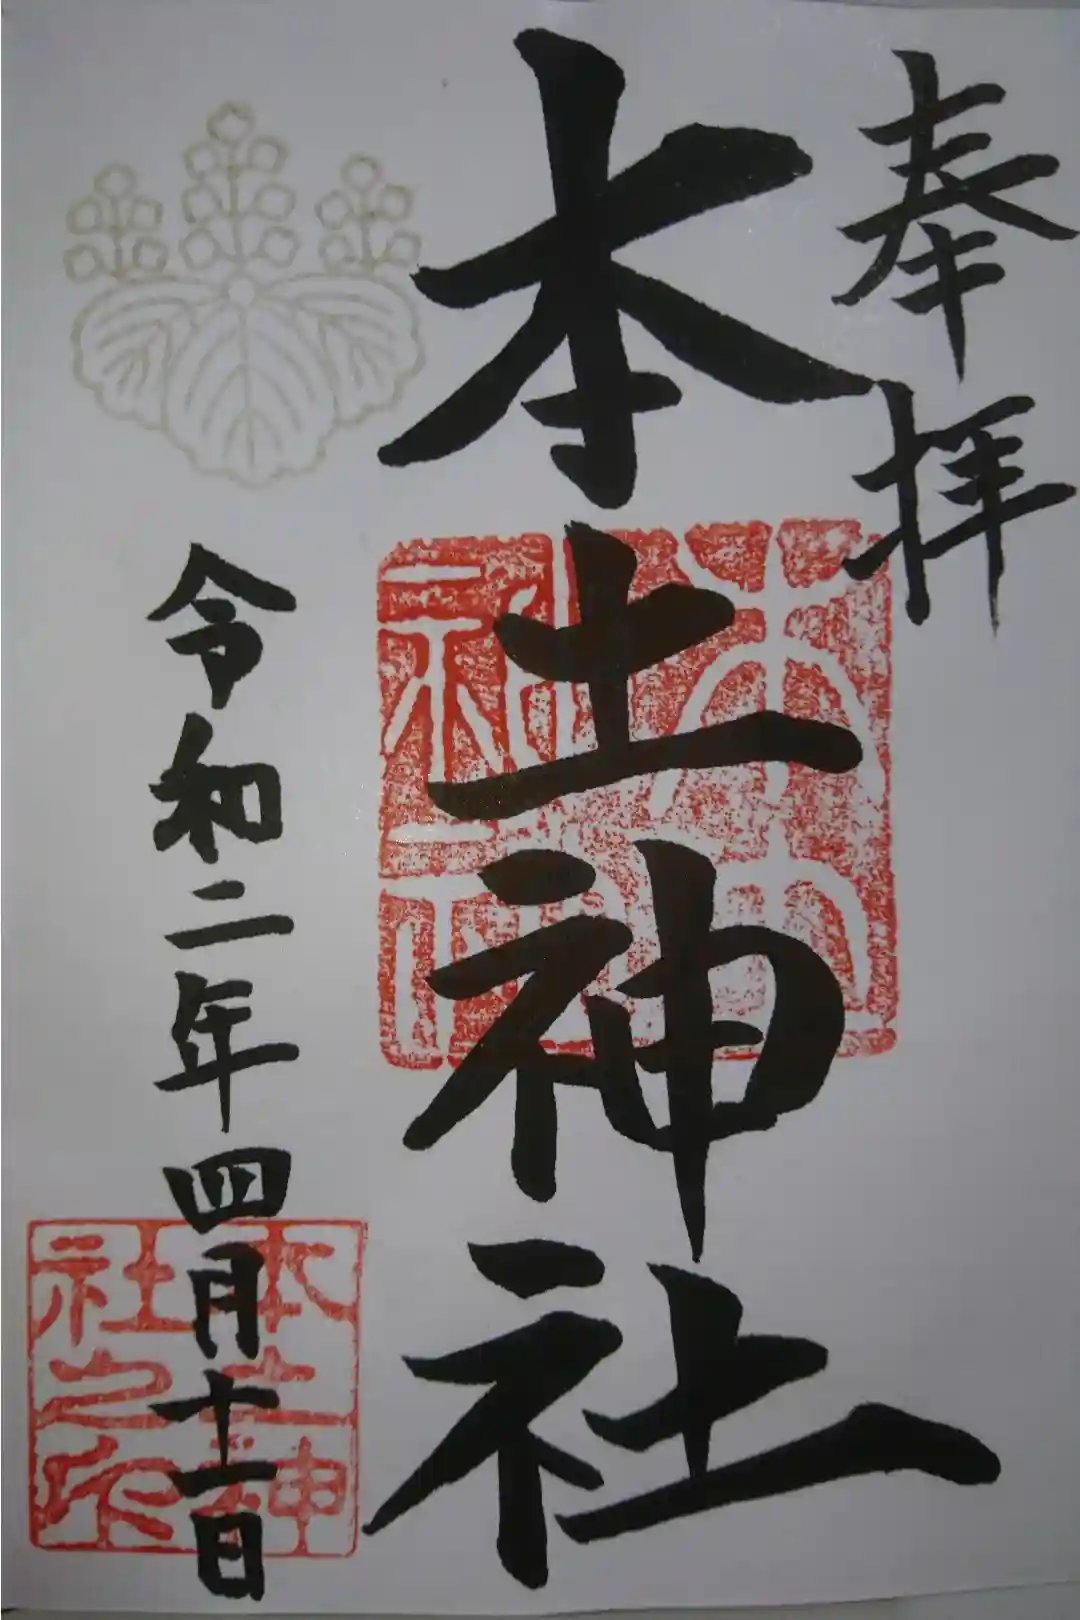 奉拝
本土神社
令和二年四月十一日
本土神社之印